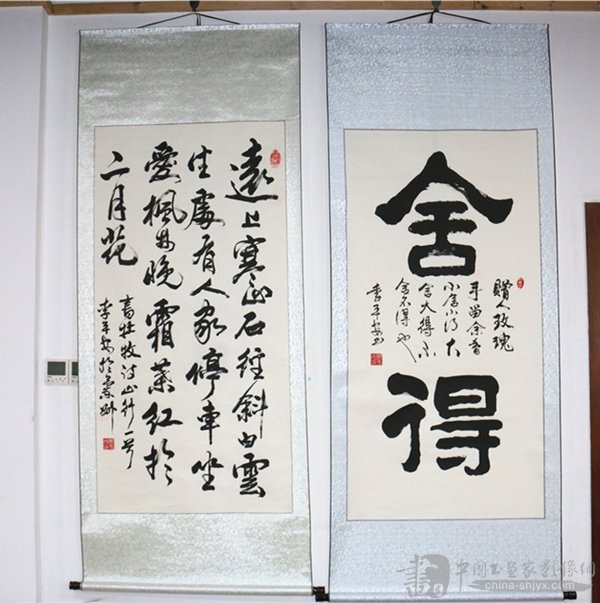 遠上寒山石徑斜白雲
生處有人家停車坐
愛楓林晚霜葉紅於
二月花
書杜牧诗山行一首
李平安於
舍得
贈人玫瑰
手留余香
小舍小得大
舍大得不
舍不得也
李平安书
中国书画家影像網
china-shjyx.com